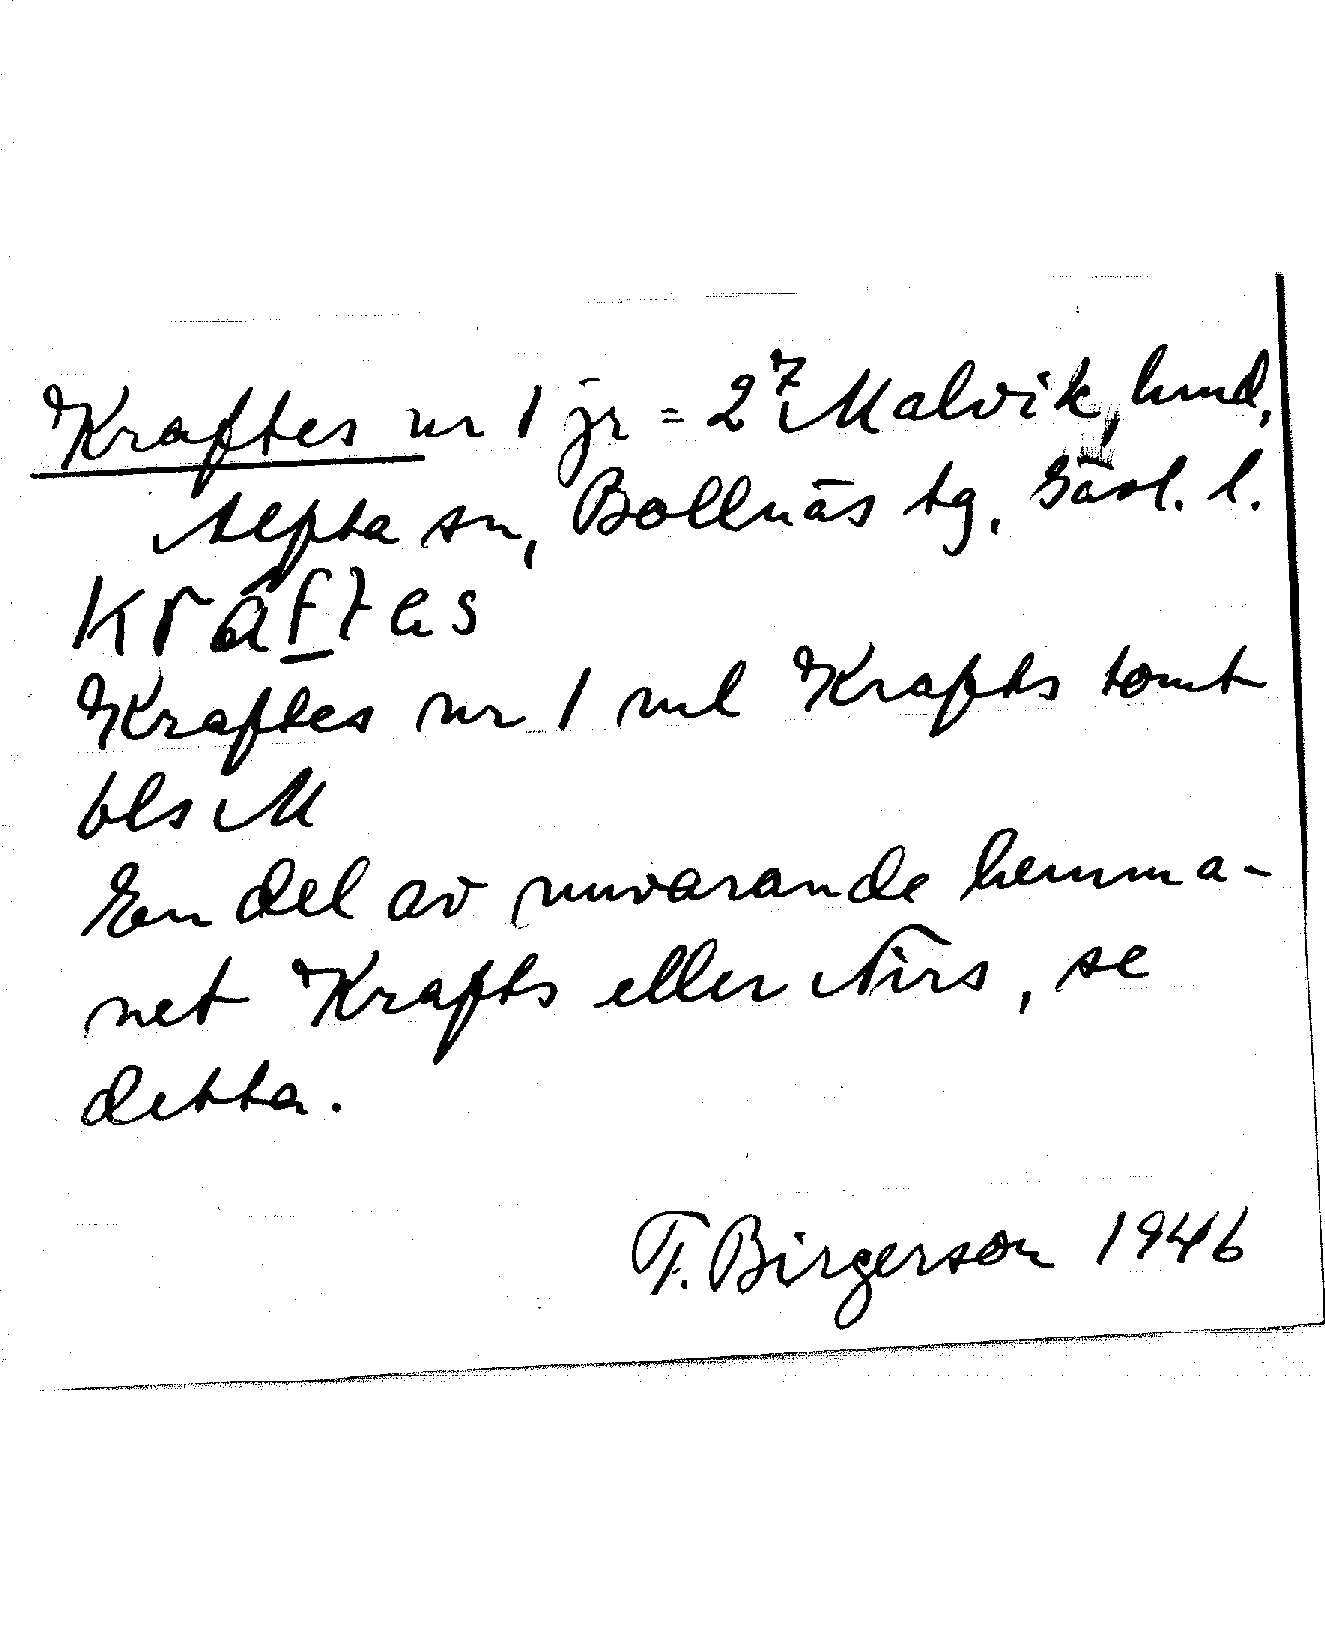 Kraftes nr 1 jr = 2⁷ Malvik, hmd,
Alfta sn, Bollnäs tg, Gävl. l.
kráftas
Kraftes nr 1 ml Krafts tomt
bls M
En del av nuvarande hemma-
net Krafts eller Nirs, se
detta.
F. Birgerson 1946